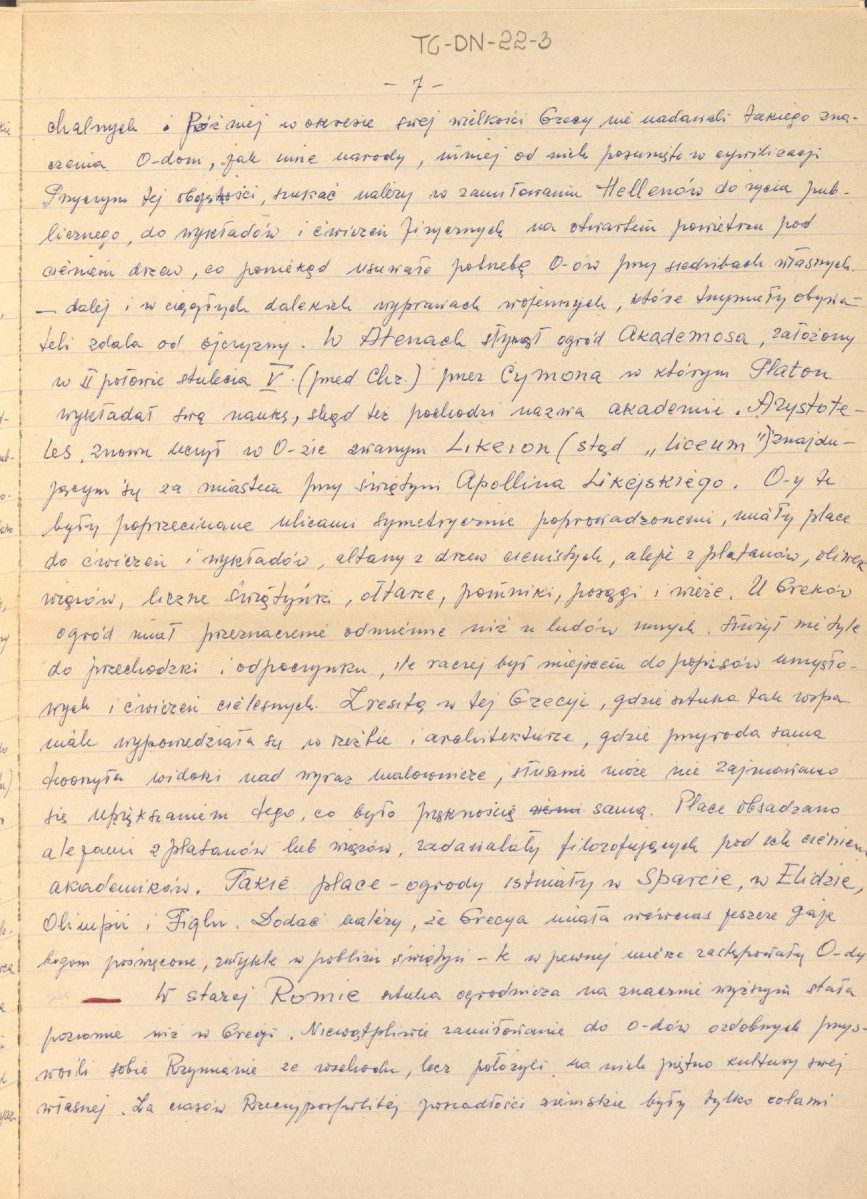 TG-DN-22-3
- 7 -
chalnych. Później w okresie swej wielkości Grecy nie nadawali takiego zna-
czenia O-dom, jak inne narody, mniej od nich posunięte w cywilizacji
Przyczyn tej obojętności, szukać należy w zamiłowaniu Hellenów do życia pub-
licznego, do wykładów i ćwiczeń fizycznych na otwartem powietrzu pod
cieniem drzew, co poniekąd usuwało potrzebę O-ów przy siedzibach własnych.
— dalej i w ciągłych dalekich wyprawach wojennych, które trzymały obywa-
teli zdala od ojczyzny. W Atenach słynął ogród Akademosa, założony
w II połowie stulecia V. (przed Chr.) przez Cymona w którym Platon
wykładał swą naukę, skąd też pochodzi nazwa akademii. Arystote-
les, znowu uczył w O-zie zwanym Likeion (stąd „liceum") znajdu-
jącym się za miastem przy świątyni Apollina Likejskiego. O-y te
były poprzecinane ulicami symetrycznie poprowadzonemi, miały place
do ćwiczeń i wykładów, altany z drzew cienistych, aleje z platanów, oliwek
wiązów, liczne świątyńki, ołtarze, pomniki, posągi i wieże. U Greków
ogród miał przeznaczenie odmienne niż u ludów innych. Służył nie tyle
do przechadzki i odpoczynku, ile raczej był miejscem do popisów umysło-
wych i ćwiczeń cielesnych. Zresztą w tej Grecyi, gdzie sztuka tak wspa
niale wypowiedziała się w rzeźbie i architekturze, gdzie przyroda sama
tworzyła widoki nad wyraz malownicze, słusznie może nie zajmowano
się upiększaniem tego, co było pięknością samą. Place obsadzano
alejami z platanów lub wiązów, zadawalały filozofujących pod ich cieniem
akademików. Takie place-ogrody istniały w Sparcie, w Elidzie,
Olimpii i Figlu. Dodać należy, że Grecya miała wówczas jeszcze gaje
bogom poświęcone, zwykle w pobliżu świątyń - te w pewnej mierze zastępowały O-dy
W starej Romie sztuka ogrodnicza na znacznie wyższym stała
poziomie niż w Grecji. Niewątpliwie zamiłowanie do o-dów ozdobnych przys-
woili sobie Rzymianie ze wschodu, lecz położyli na nich piętno kultury swej
własnej. Za czasów Rzeczypospolitej posiadłości ziemskie były tylko rolami